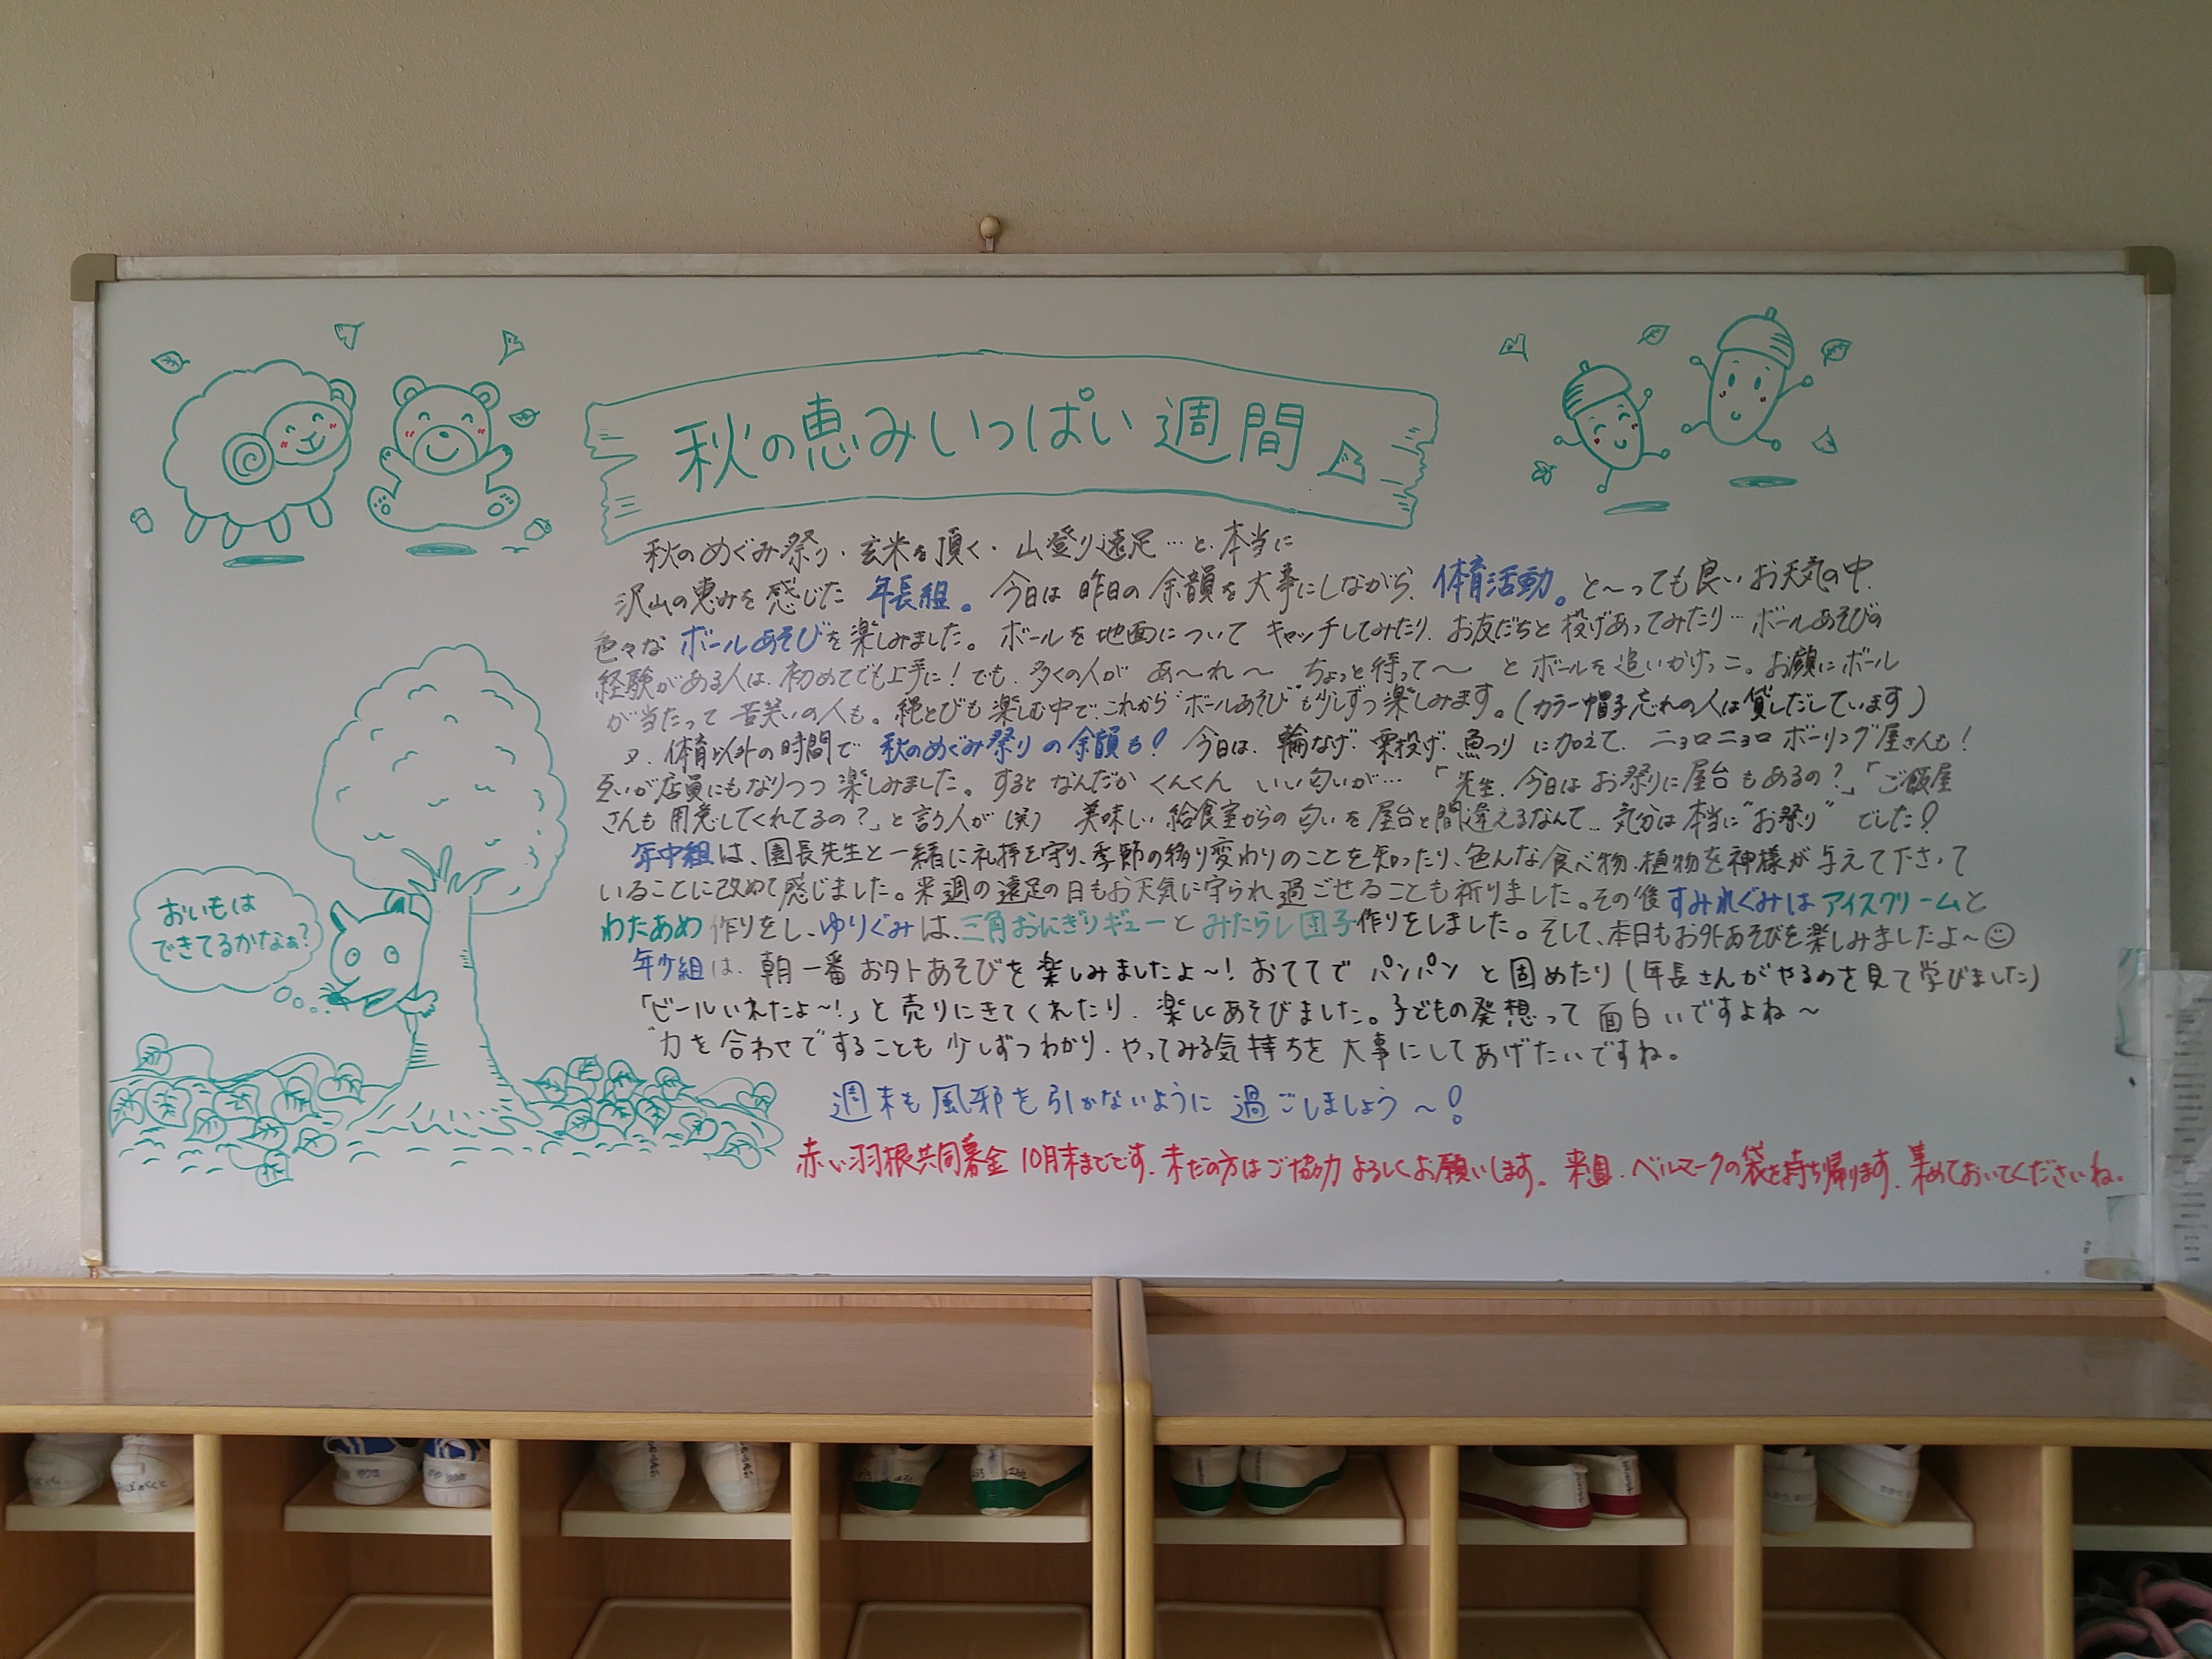 秋の恵みいっぱい週間
秋のめぐみ祭り・玄米を頂く・山登り遠足…と、本当に
沢山の恵みを感じた年長組。今日は昨日の余韻を大事にしながら、体育活動。と〜っても良いお天気の中、
色々なボールあそびを楽しみました。ボールを地面についてキャッチしてみたり、お友だちと投げあってみたり…ボールあそびの
経験がある人は、初めてでも上手に!でも、多くの人が あ〜れ〜 ちょっと待って〜 とボールを追いかけっこ。お顔にボール
が当たって苦笑いの人も。縄とびも楽しむ中で、これから"ボールあそび"も少しずつ楽しみます。(カラー帽子忘れの人は貸しだしています)
又、体育以外の時間で 秋のめぐみ祭りの余韻も! 今日は、輪なげ・栗投げ・魚つりに加えて、ニョロニョロボーリング屋さんも!
互いが店員にもなりつつ楽しみました。するとなんだか くんくん いい匂いが…「先生、今日はお祭りに屋台もあるの?」「ご飯屋
さんも用意してくれてるの?」と言う人が(笑) 美味しい給食室からの匂いを屋台と間違えるなんて…気分は本当に"お祭り"でした!
年中組は、園長先生と一緒に礼拝を守り、季節の移り変わりのことを知ったり、色んな食べ物、植物を神様が与えて下さって
いることに改めて感じました。来週の遠足の日もお天気に守られ過ごせることも祈りました。その後すみれぐみはアイスクリームと
わたあめ作りをし、ゆりぐみは、三角おにぎりギューとみたらし団子作りをしました。そして、本日もお外あそびを楽しみましたよ〜☺
年少組は、朝一番お外あそびを楽しみましたよ〜!おててで パンパン と固めたり(年長さんがやるのを見て学びました)
「ビールいれたよ〜!」と売りにきてくれたり、楽しくあそびました。子どもの発想って面白いですよね〜
力を合わせてすることも少しずつわかり、やってみる気持ちを大事にしてあげたいですね。
週末も風邪を引かないように過ごしましょう〜!
赤い羽根共同募金10月末までです。まだの方はご協力よろしくお願いします。来週、ベルマークの袋を持ち帰ります。集めておいてくださいね。
おいもは
できてるかなぁ?